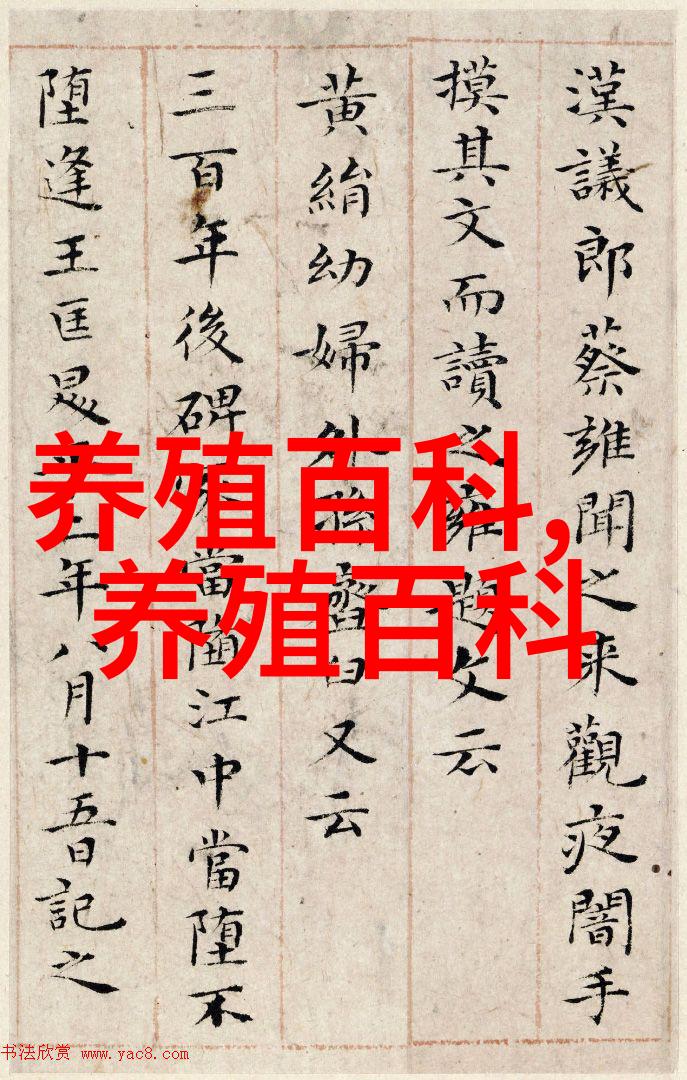 漢議郎蔡雍聞之来觀夜闇手
摸其文而讀之雍題文云
黃絹幼婦外孫臼又云
三百年後碑當江中當堕不
堕逢王匡二年八月十五日記之
养殖百科,
养殖百科
书法欣赏 www.yac8.com